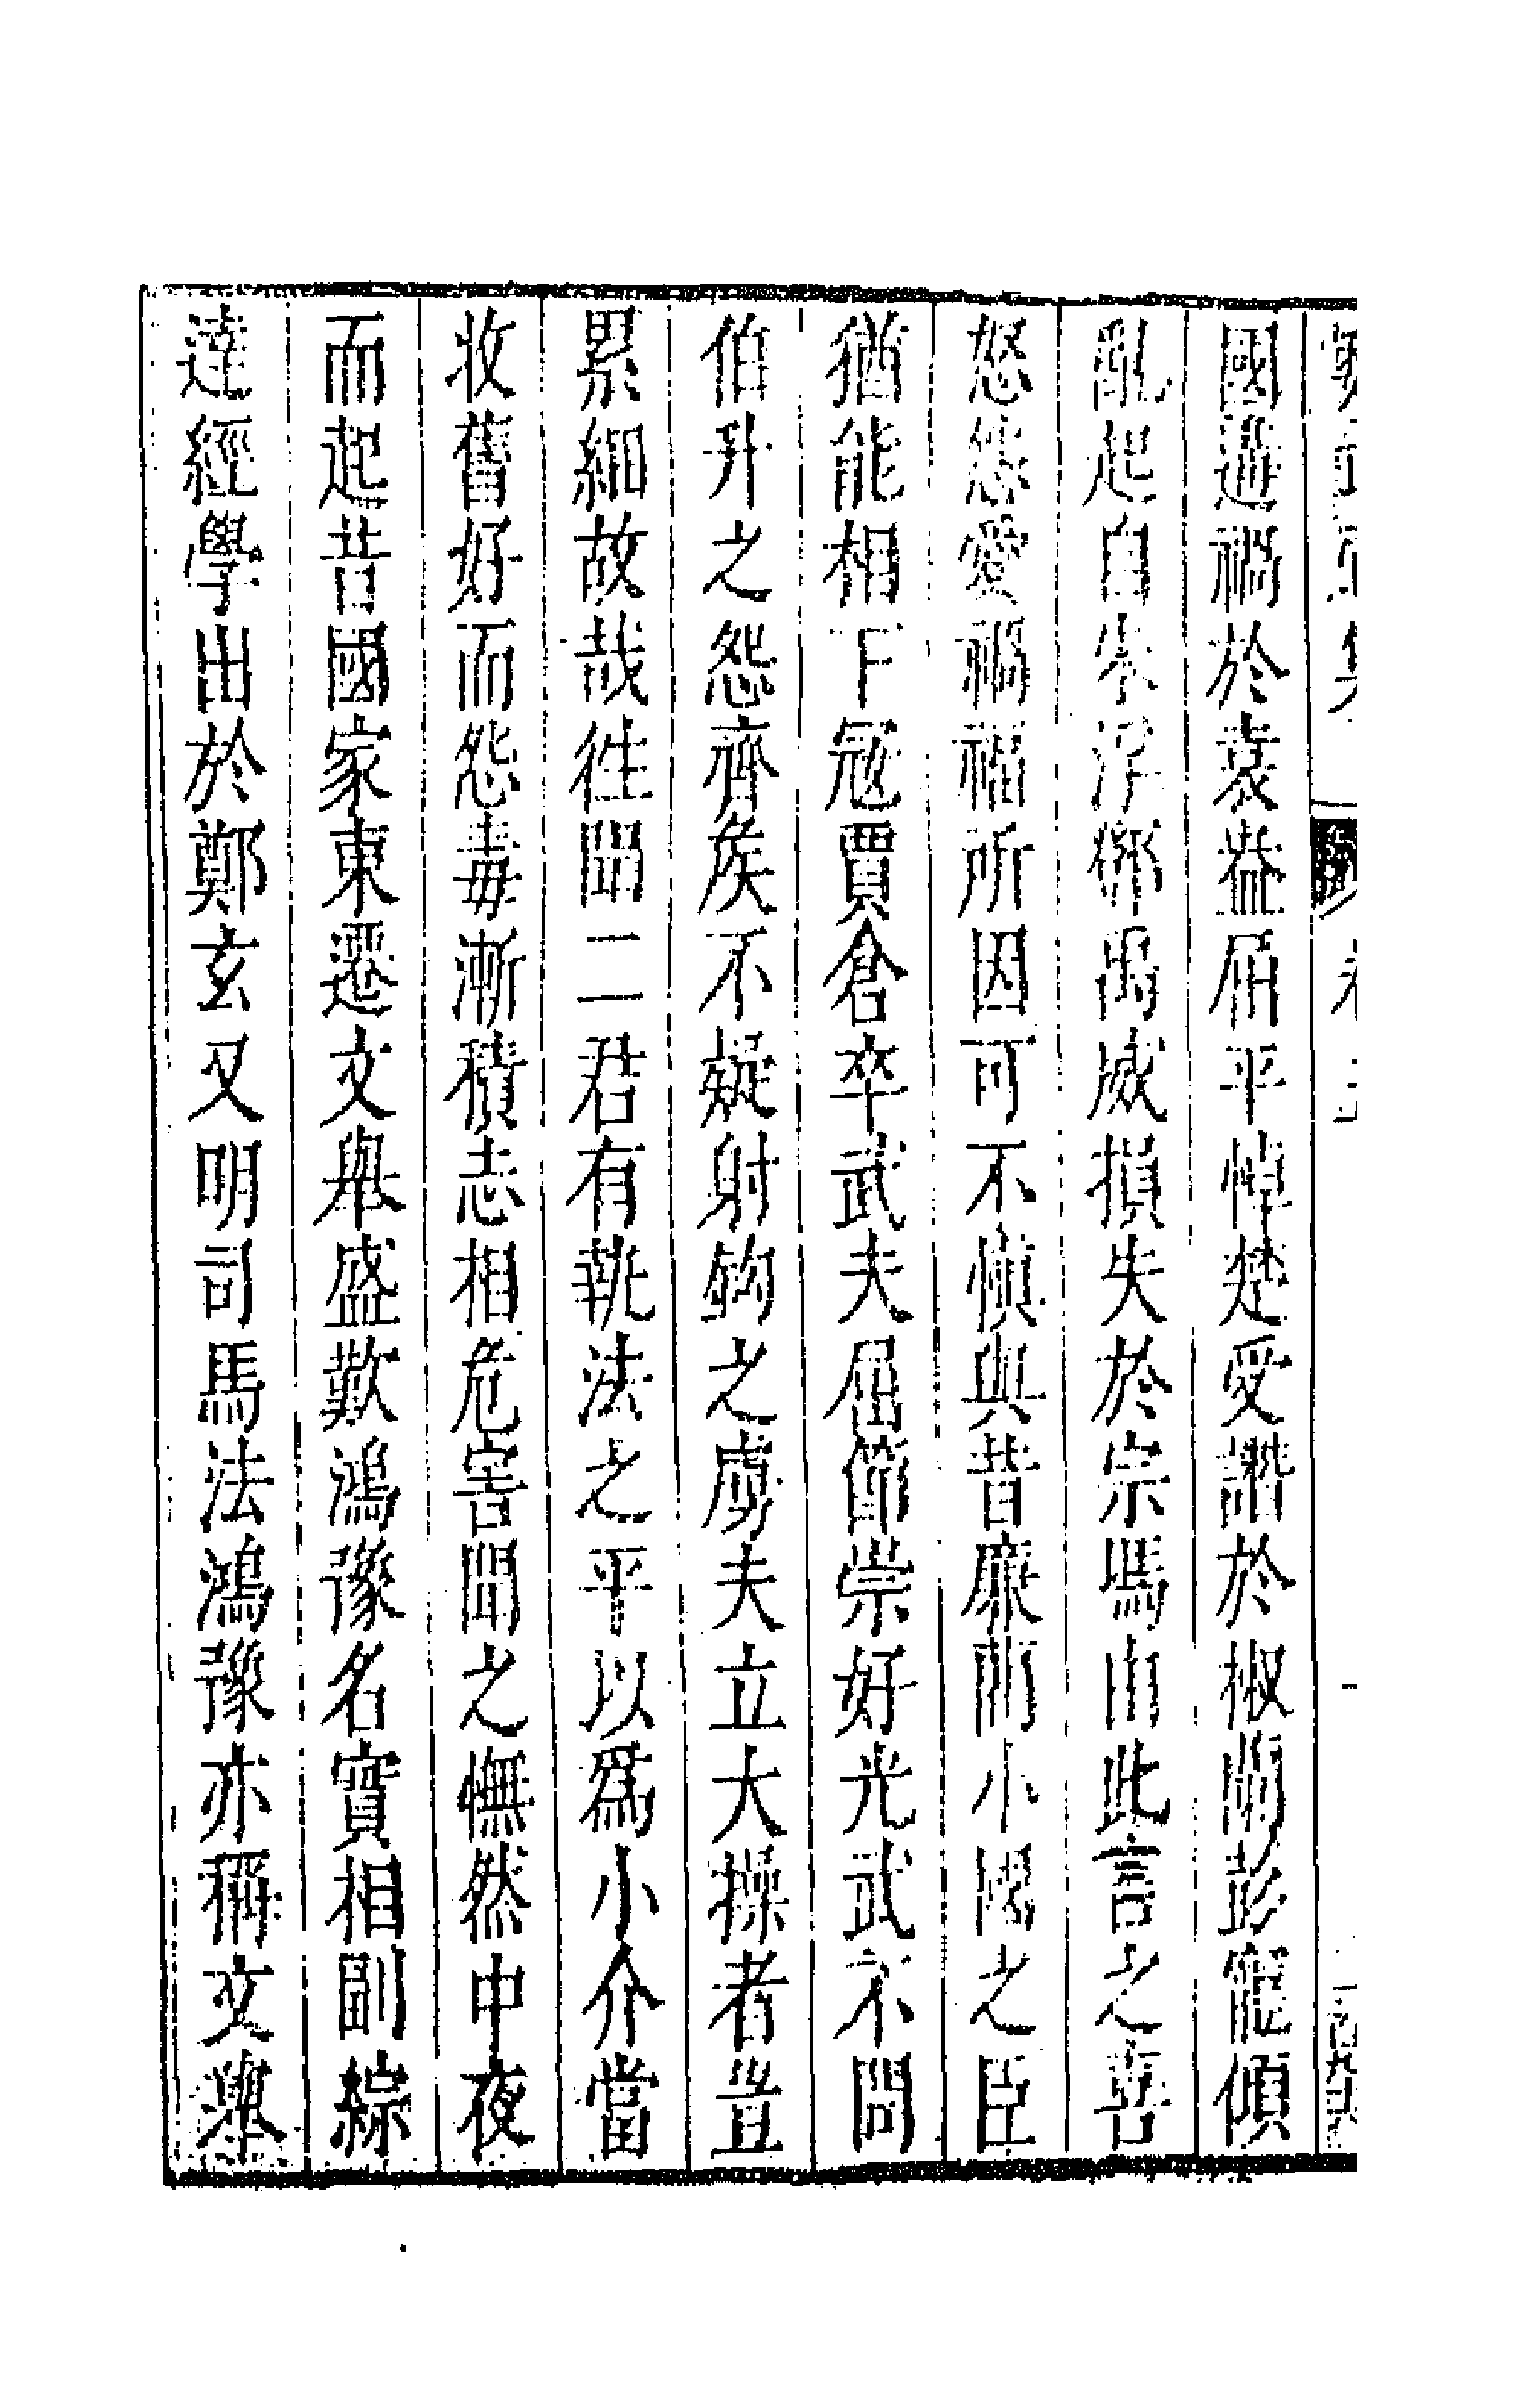 國遘禍於袁盎屈平悼楚受譖於椒蘭彭寵傾
亂起自朱浮鄧禹威損失於宗馮由此言之喜
怒怨愛禍福所因可不慎與昔廉藺小國之臣
猶能相下寇賈倉卒武夫屈節崇好光武不問
伯升之怨齊侯不疑射鉤之虜夫立大操者豈
累細故哉往聞二君有執法之平以爲小介當
收舊好而怨毒漸積志相危害聞之憮然中夜
而起昔國家東遷文舉盛歎鴻豫名實相副綜
達經學出於鄭玄又明司馬法鴻豫亦稱文舉